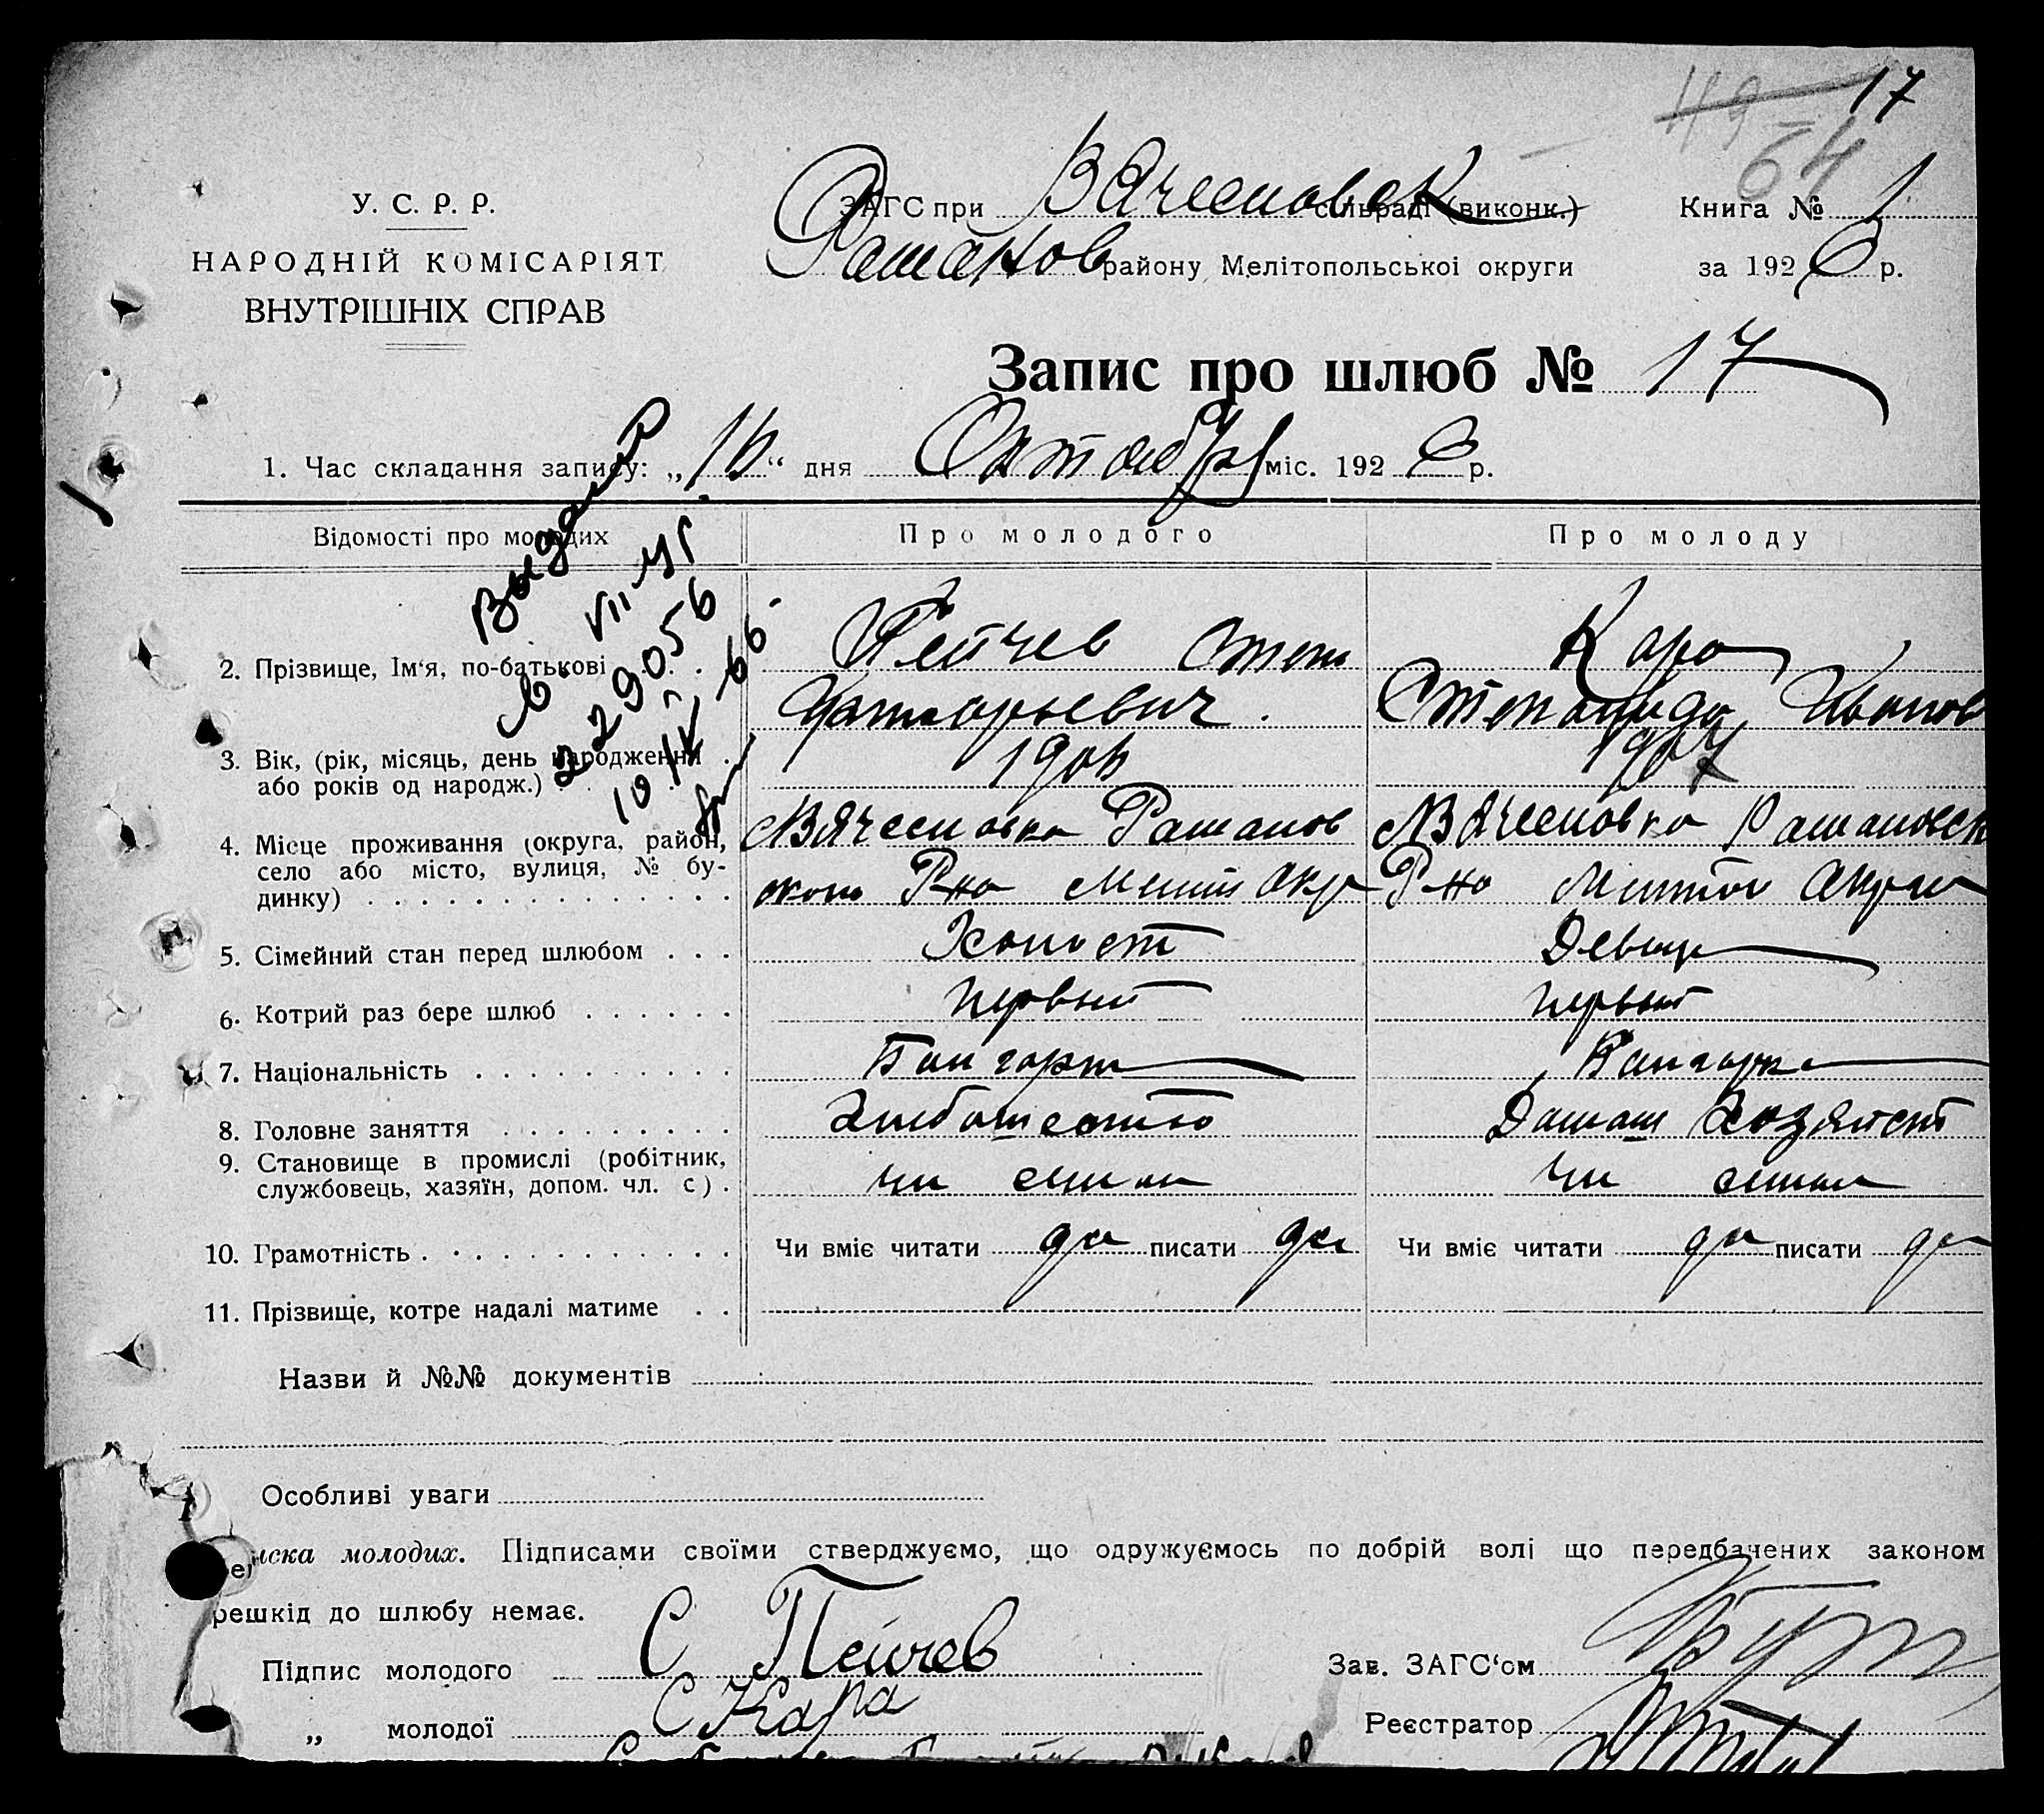 17
119
64
У. С. Р. Р.
НАРОДНІЙ КОМІСАРІЯТ
ВНУТРІШНІХ СПРАВ
ЗАГС при Вячесловск сільраді (виконк.) Книга № 1
району Мелітопольської округи за 1926 р.
Запис про шлюб № 17
1. Час складання запису: „16“ дня Октября міс. 1926 р.
Відомості про молодих Про молодого Про молоду
2. Прізвище, Ім'я, по-батькові Пейчев Степ Кара
Григорьевич. Степанида Иванов
3. Вік, (рік, місяць, день народження 1906 1907
або років од народж.)
4. Місце проживання (округа, район,
село або місто, вулиця, № бу-
динку)
5. Сімейний стан перед шлюбом Холост Девиц
6. Котрий раз бере шлюб Первый первый
7. Національність Болгарин Болгарка
8. Головне заняття Хлебопашество Домаш Хозяйст
9. Становище в промислі (робітник, чл семи чл семи
службовець, хазяїн, допом. чл. с)
10. Грамотність Чи вміє читати да писати да Чи вміє читати да писати да
11. Прізвище, котре надалі матиме
Назви й №№ документів
Особливі уваги
иска молодих. Підписами своїми стверджуємо, що одружуємось по добрій волі що передбачених законом
решкід до шлюбу немає.
Підпис молодого С Пейчев Зав. ЗАГС'ом
„ молодої С Кара Реєстратор